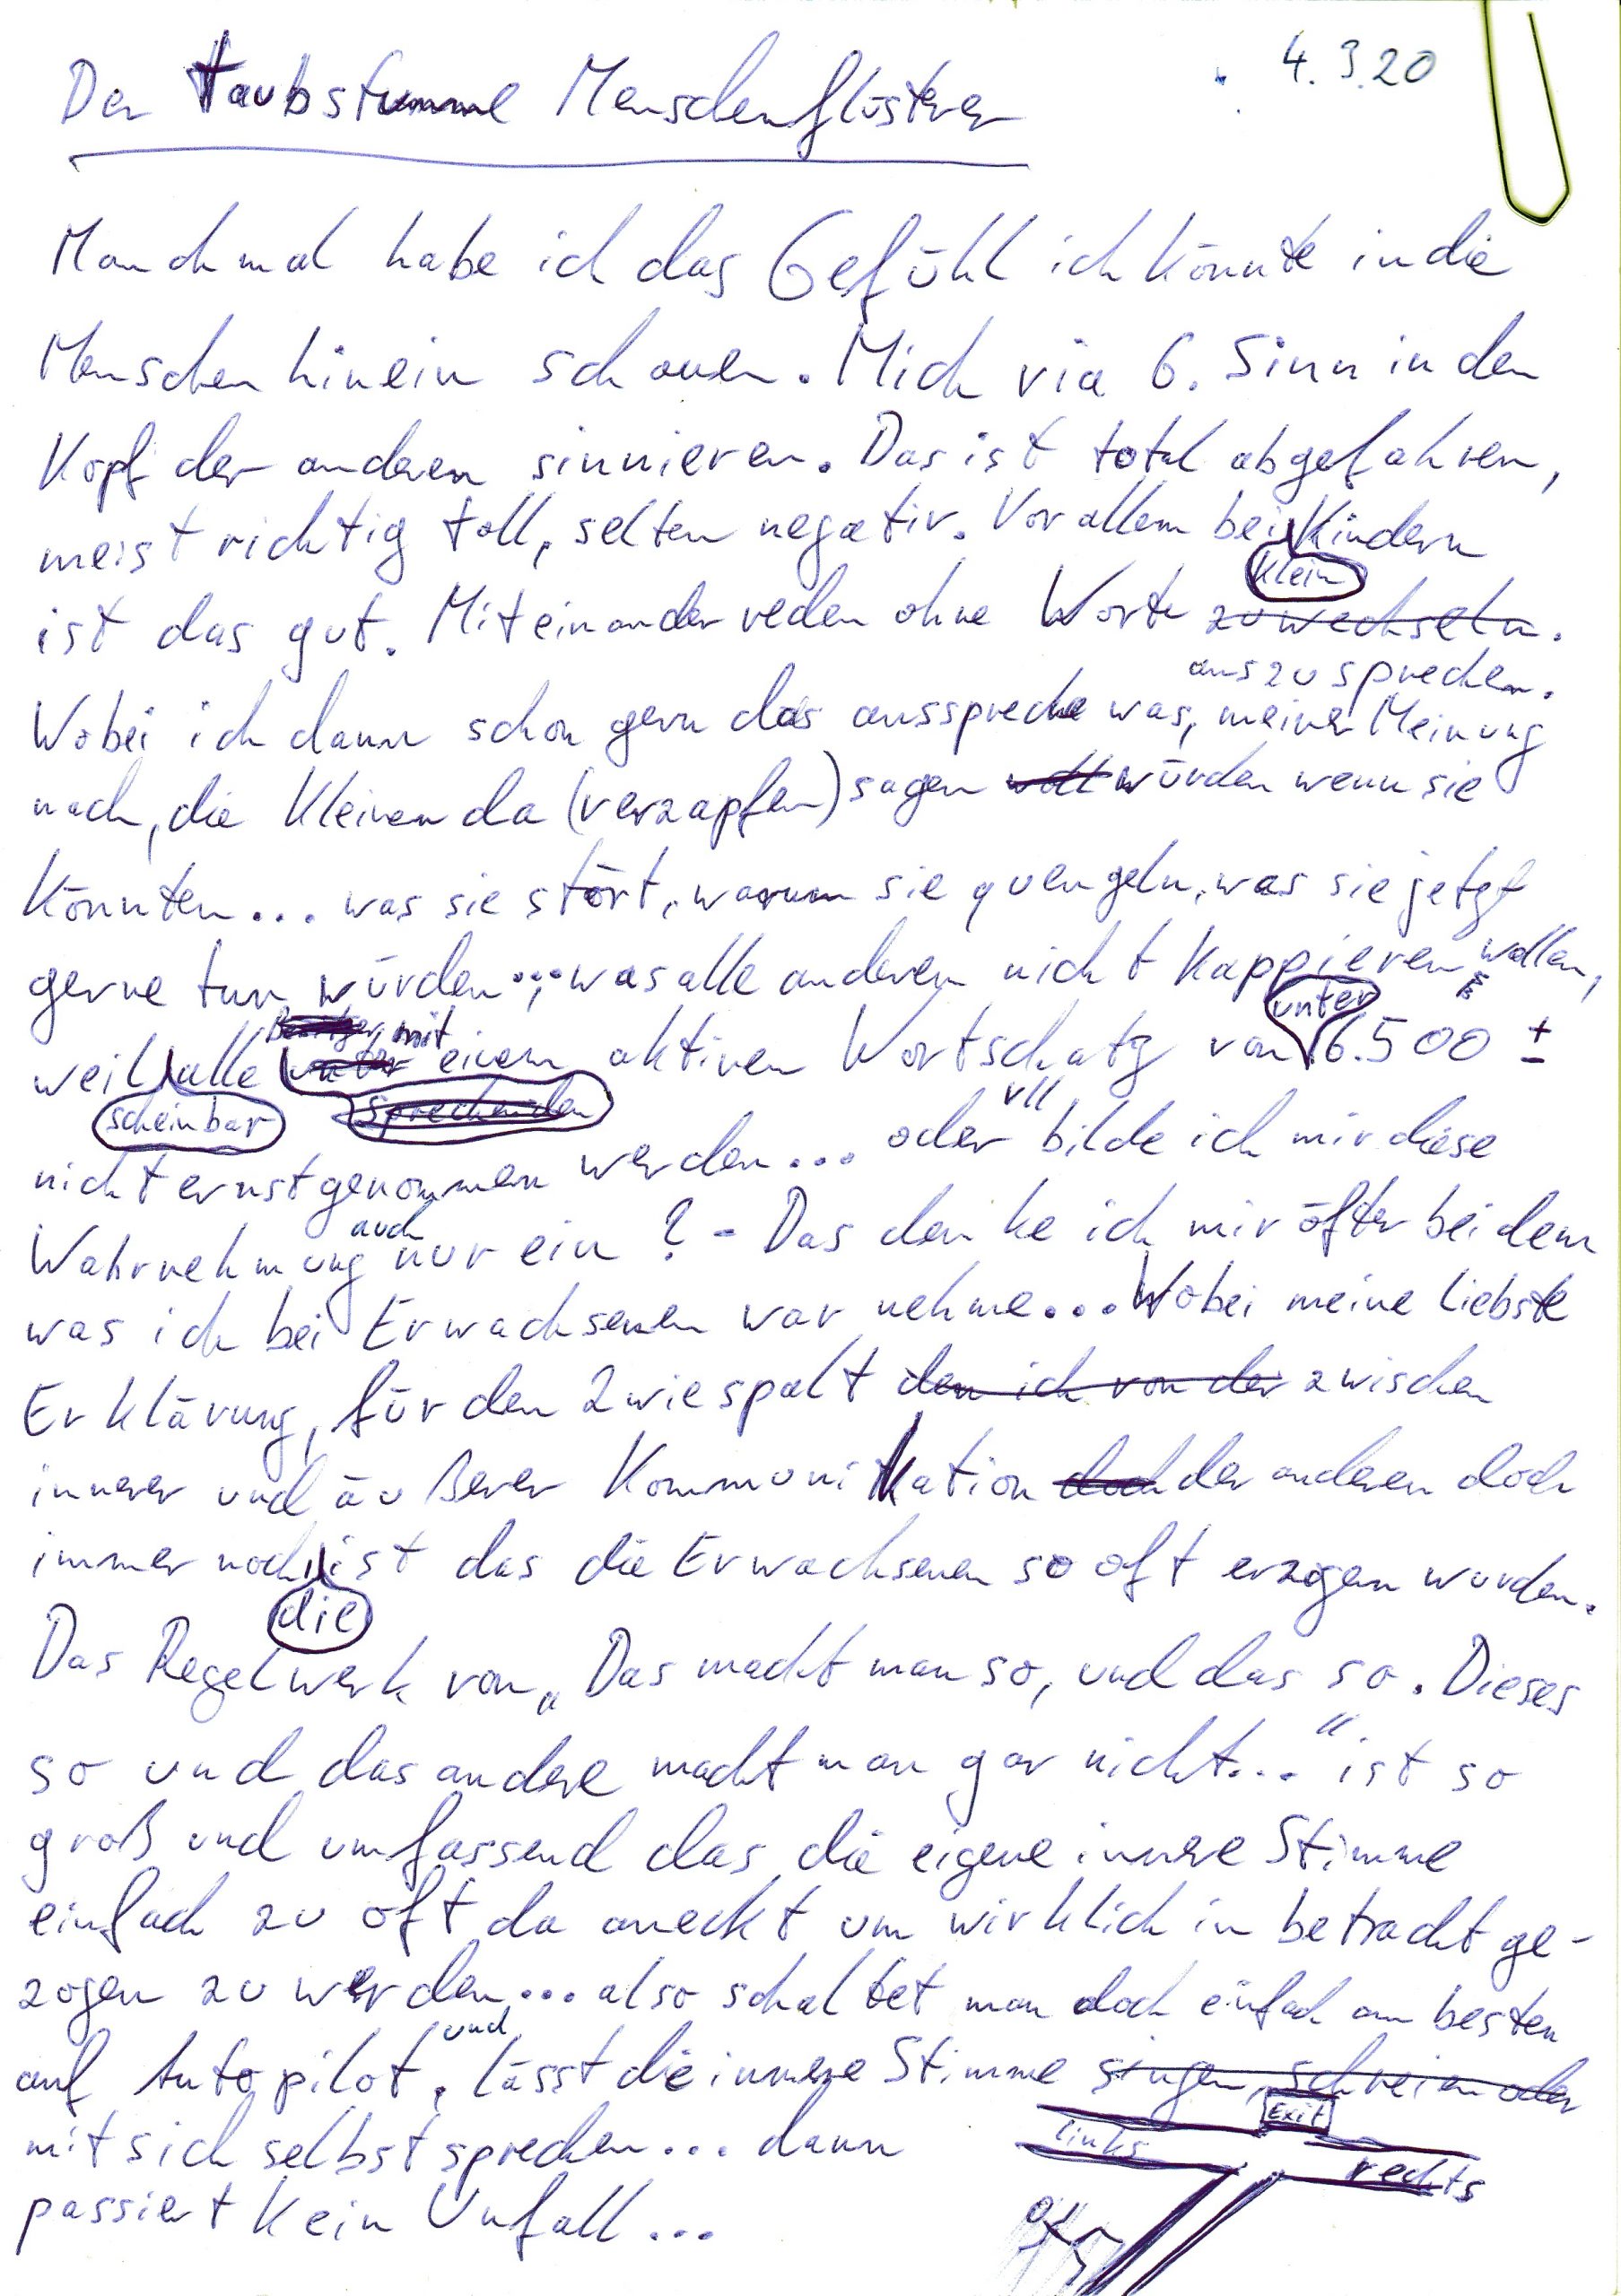 4.3.20
Der Taubstumme Menschenflüsterer
Manchmal habe ich das Gefühl ich könnte in die
Menschen hinein schauen. Mich via 6. Sinn in den
Kopf der anderen sinnieren. Das ist total abgefahren,
meist richtig toll, selten negativ. Vor allem bei Kindern
klein
ist das gut. Miteinander reden ohne Worte zu wechseln.
auszusprechen.
Wobei ich dann schon gern das ausspreche was, meiner Meinung
nach, die Kleinen da (verzapfen) sagen woll würden wenn sie
könnten... was sie stört, warum sie quengeln, was sie jetzt
gerne tun würden...; was alle anderen nicht kappieren wollen,
unter
Besitzer mit
weil alle unter einem aktiven Wortschatz von 6.500 ±
scheinbar sprechenden
vll
nicht ernstgenommen werden... oder bilde ich mir diese
auch
Wahrnehmung nur ein? - Das denke ich mir öfter bei dem
was ich bei Erwachsenen war nehme... Wobei meine liebste
Erklärung, für den Zwiespalt den ich von der zwischen
innerer und äußerer Kommunikation doch der anderen doch
immer noch ist das die Erwachsenen so oft erzogen wurden.
die
Das Regelwerk von „Das macht man so, und das so. Dieses
so und das andere macht man gar nicht..." ist so
groß und umfassend das die eigene innere Stimme
einfach zu oft da aneckt um wirklich in betracht ge-
zogen zu werden... also schaltet man doch einfach am besten
und
auf Autopilot, lässt die innere Stimme singen, schreien oder
mit sich selbst sprechen... dann
passiert kein Unfall...
Exit
links
rechts